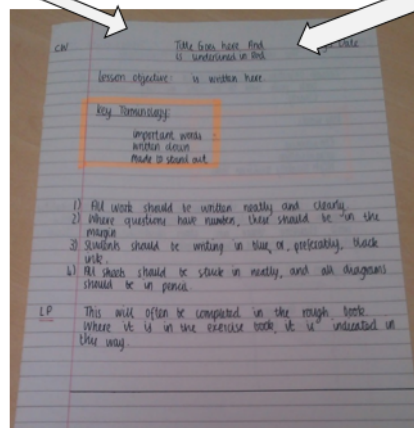 CW Title Goes here And Date
is underlined in And
Lesson objective: is written here
Key Terminology:
important words
written down
made to stand out
1) All work should be written neatly and clearly.
2) Where questions have numbers, these should be in the
margin
3) Students should be writing in blue, or, preferably, black
ink.
4) All sheets should be stuck in neatly, and all diagrams
should be in pencil.
LP This will often be completed in the rough book.
Where it is in the exercise book, it is indicated in
this way.